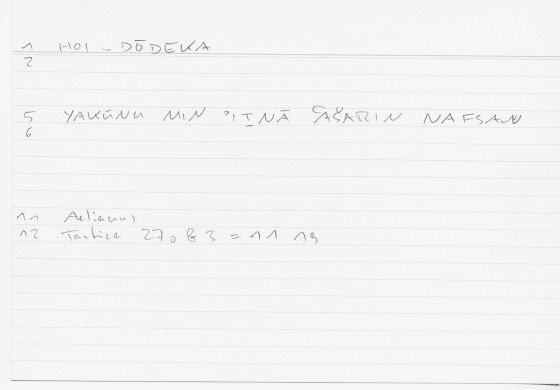 1 HOI – DŌDEKA
2
5 YAKŪNU MIN ʾIṮNĀ ʿAŠARIN NAFSAN
6
11 Aelianus
12 Tactica 270 b 3 = 11.19